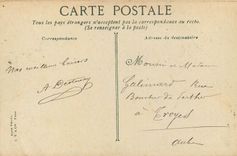 CARTE POSTALE
Tous les pays étrangers n'acceptent pas la correspondance au recto.
(Se renseigner à la poste)
Correspondance
Adresse du destinataire
Nos meilleurs baisers
A.
Monsieur et Madame
Rue
à Troyes
Aube